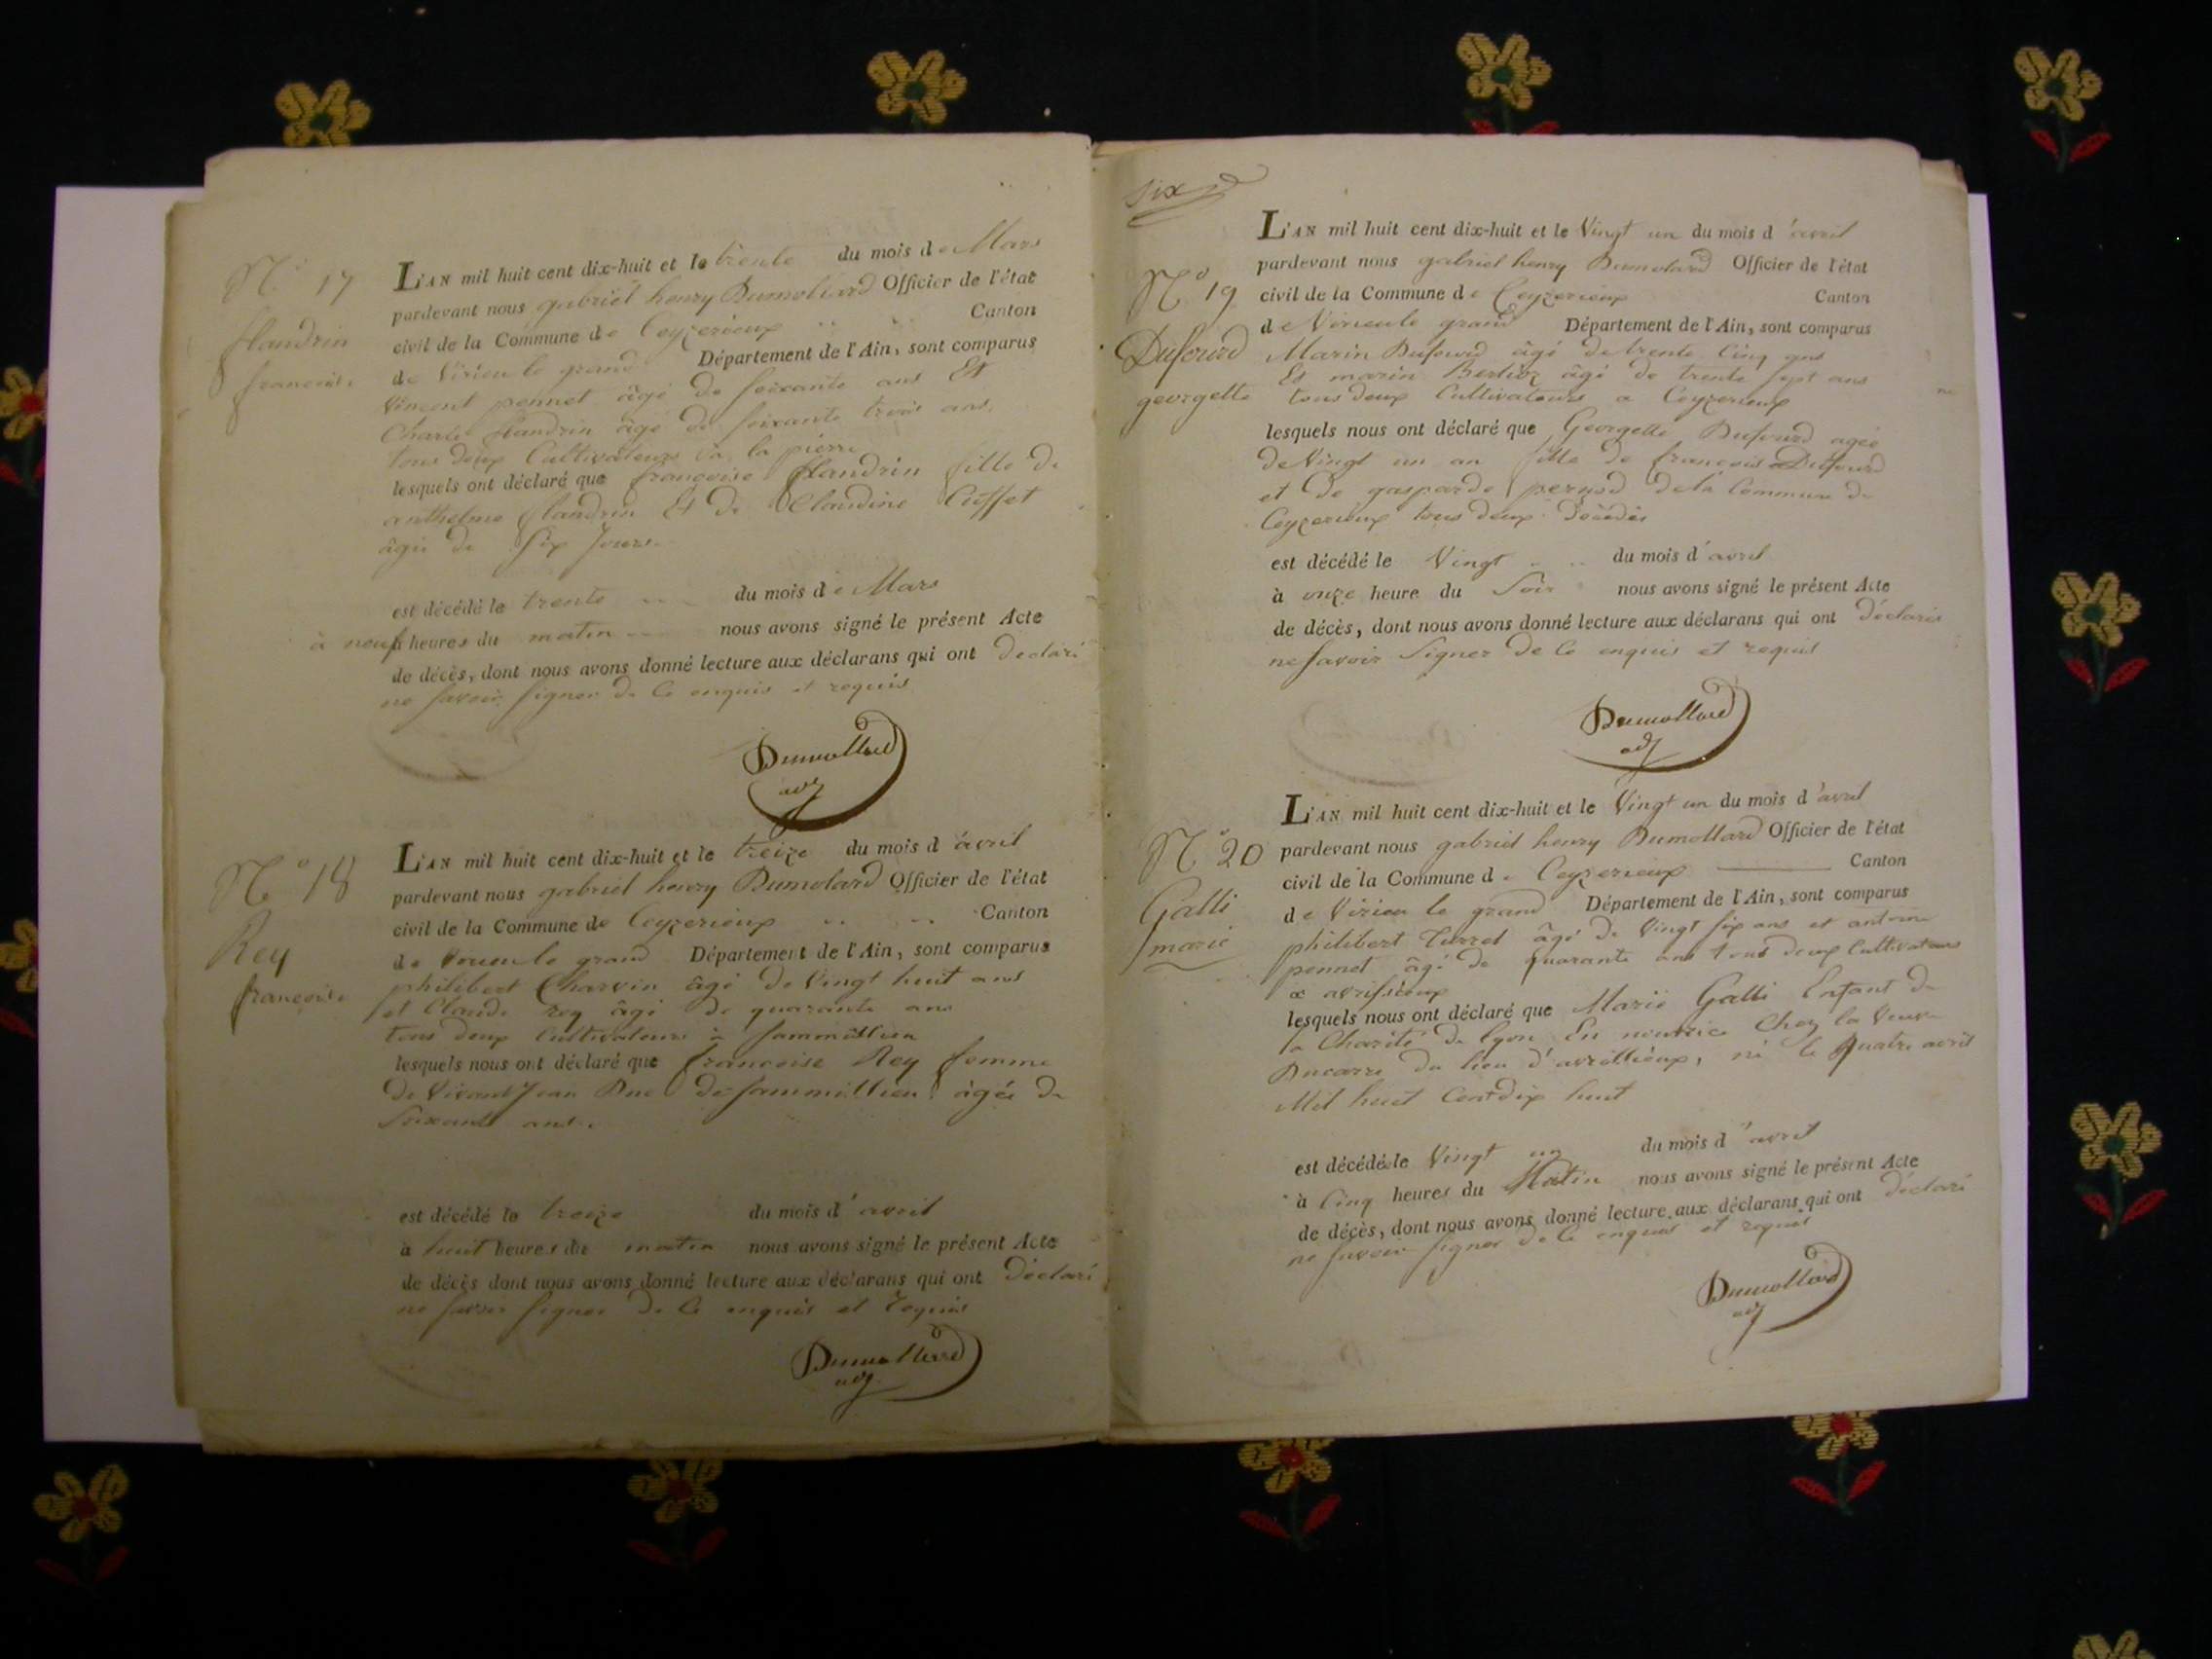 N° 17
flandrin
françoise
L'AN mil huit cent dix-huit et le trente du mois de Mars
pardevant nous gabriel henry Dumollard Officier de l'état
civil de la Commune de Ceyzerieux Canton
de Virieu le grand Département de l'Ain, sont comparus
Vincent pennet âgé de soixante ans Et
Charle flandrin âgé de soixante trois ans
tous deux Cultivateurs à la pierre
lesquels ont déclaré que françoise flandrin fille de
anthelme flandrin Et de Claudine Cuffet
âgée de Six Jours
est décédé le trente du mois de Mars
à neuf heures du matin nous avons signé le présent Acte
de décès, dont nous avons donné lecture aux déclarans qui ont declaré
ne savoir signer de ce enquis et requis
Dumollard
adj
N° 18
Rey
françoise
L'AN mil huit cent dix-huit et le treize du mois d'avril
pardevant nous gabriel henry Dumolard Officier de l'état
civil de la Commune de Ceyzerieux Canton
de le grand Département de l'Ain, sont comparus
philibert Charvin âgé de Vingt huit ans
et Claude rey âgé de quarante ans
tous deux Cultivateurs à
lesquels nous ont déclaré que françoise Rey femme
de Vivant Jean de âgée de
Soixante ans
est décédé le treize du mois d'avril
à huit heures du matin nous avons signé le présent Acte
de décès dont nous avons donné lecture aux déclarans qui ont déclaré
ne savoir signer de ce enquis et requis
Dumollard
adj
six
N° 19
Dufourd
georgette
L'AN mil huit cent dix-huit et le Vingt un du mois d'avril
pardevant nous gabriel henry Dumolard Officier de l'état
civil de la Commune de Ceyzerieux Canton
de Virieu le grand Département de l'Ain, sont comparus
Marin Dufourd âgé de trente Cinq ans
Et marin Berlioz âgé de trente sept ans
tous deux Cultivateurs a Ceyzerieux
lesquels nous ont déclaré que Georgette Dufourd agée
de Vingt un an fille de françois Dufourd
et de gasparde de la Commune de
Ceyzerieux tous deux Décédés
est décédé le Vingt du mois d'avril
à onze heure du Soir nous avons signé le présent Acte
de décès, dont nous avons donné lecture aux déclarans qui ont déclaré
ne savoir Signer de Ce enquis et requis
Dumollard
adj
N° 20
Galli
marie
L'AN mil huit cent dix-huit et le Vingt un du mois d'avril
pardevant nous gabriel henry Dumollard Officier de l'état
civil de la Commune de Ceyzerieux Canton
de Virieu le grand Département de l'Ain, sont comparus
philibert Turrel âgé de Vingt six ans et antoine
pennet âgé de quarante ans tous deux Cultivateurs
a
lesquels nous ont déclaré que Marie Galli Enfant de
la Charité de lyon En nourrice Chez la Veuve
du lieu né le quatre avril
Mil huit Cent dix huit
est décédé le Vingt un du mois d'avril
à Cinq heures du Matin nous avons signé le présent Acte
de décès, dont nous avons donné lecture aux déclarans qui ont déclaré
ne savoir signer de Ce enquis et requis
Dumollard
adj